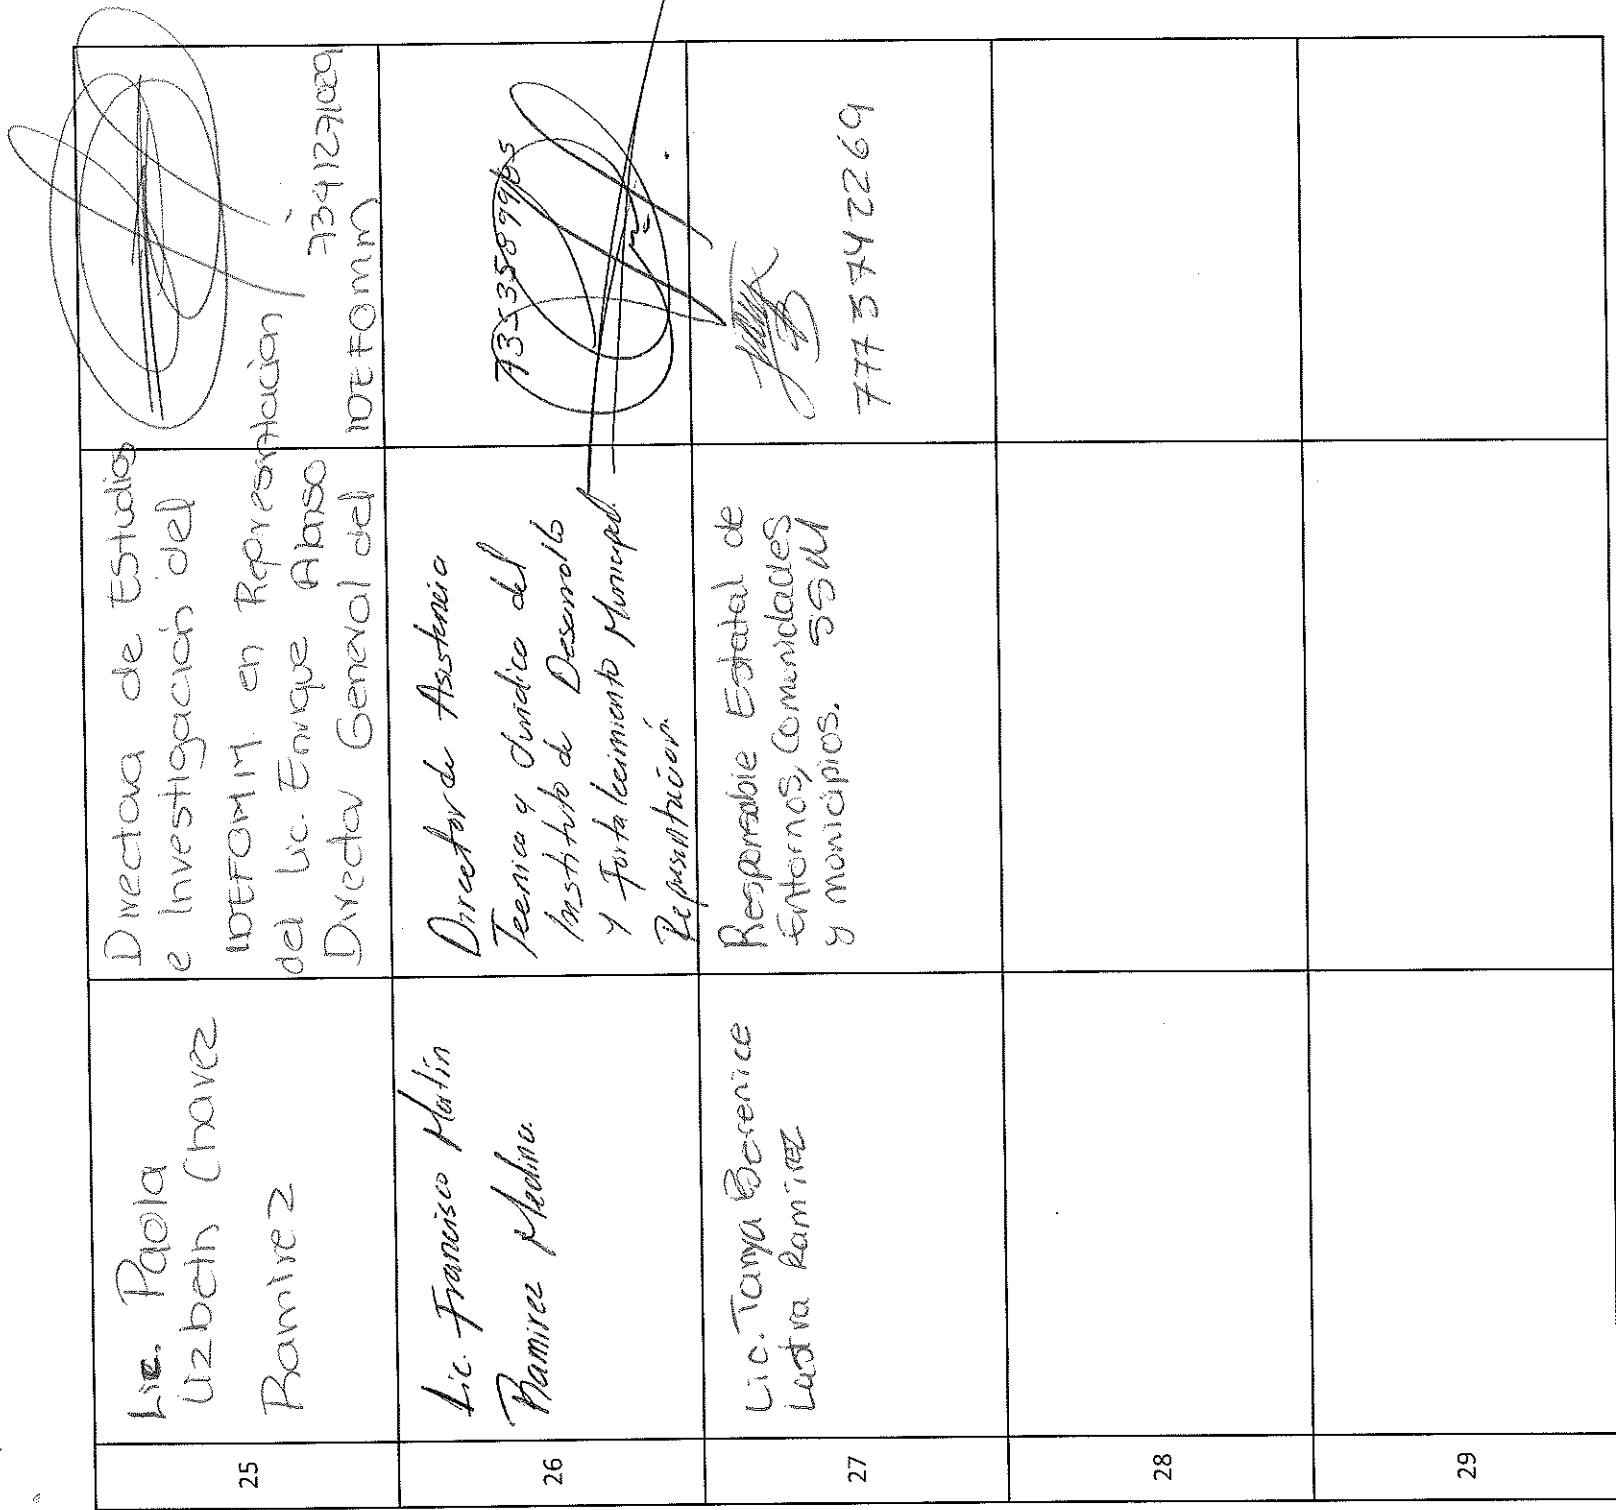 25
Lic. Paola
Lizbeth Chavez
Ramirez
Directora de Estudios
e Investigación del
IDEFOMM en Representación
del Lic. Enrique Alonso
Director General del IDEFOMM
7341271029
26
Lic. Francisco Martín
Ramirez Medina.
Director de Asistencia
Tecnica y Juridica del
Instituto de Desarrollo
y Fortalecimiento Municipal.
Representación.
27
Lic. Tanya Berenice
Lastra Ramirez
Responsable Estatal de
Entornos, Comunidades
y municipios. SSM
777 374 2269
28
29